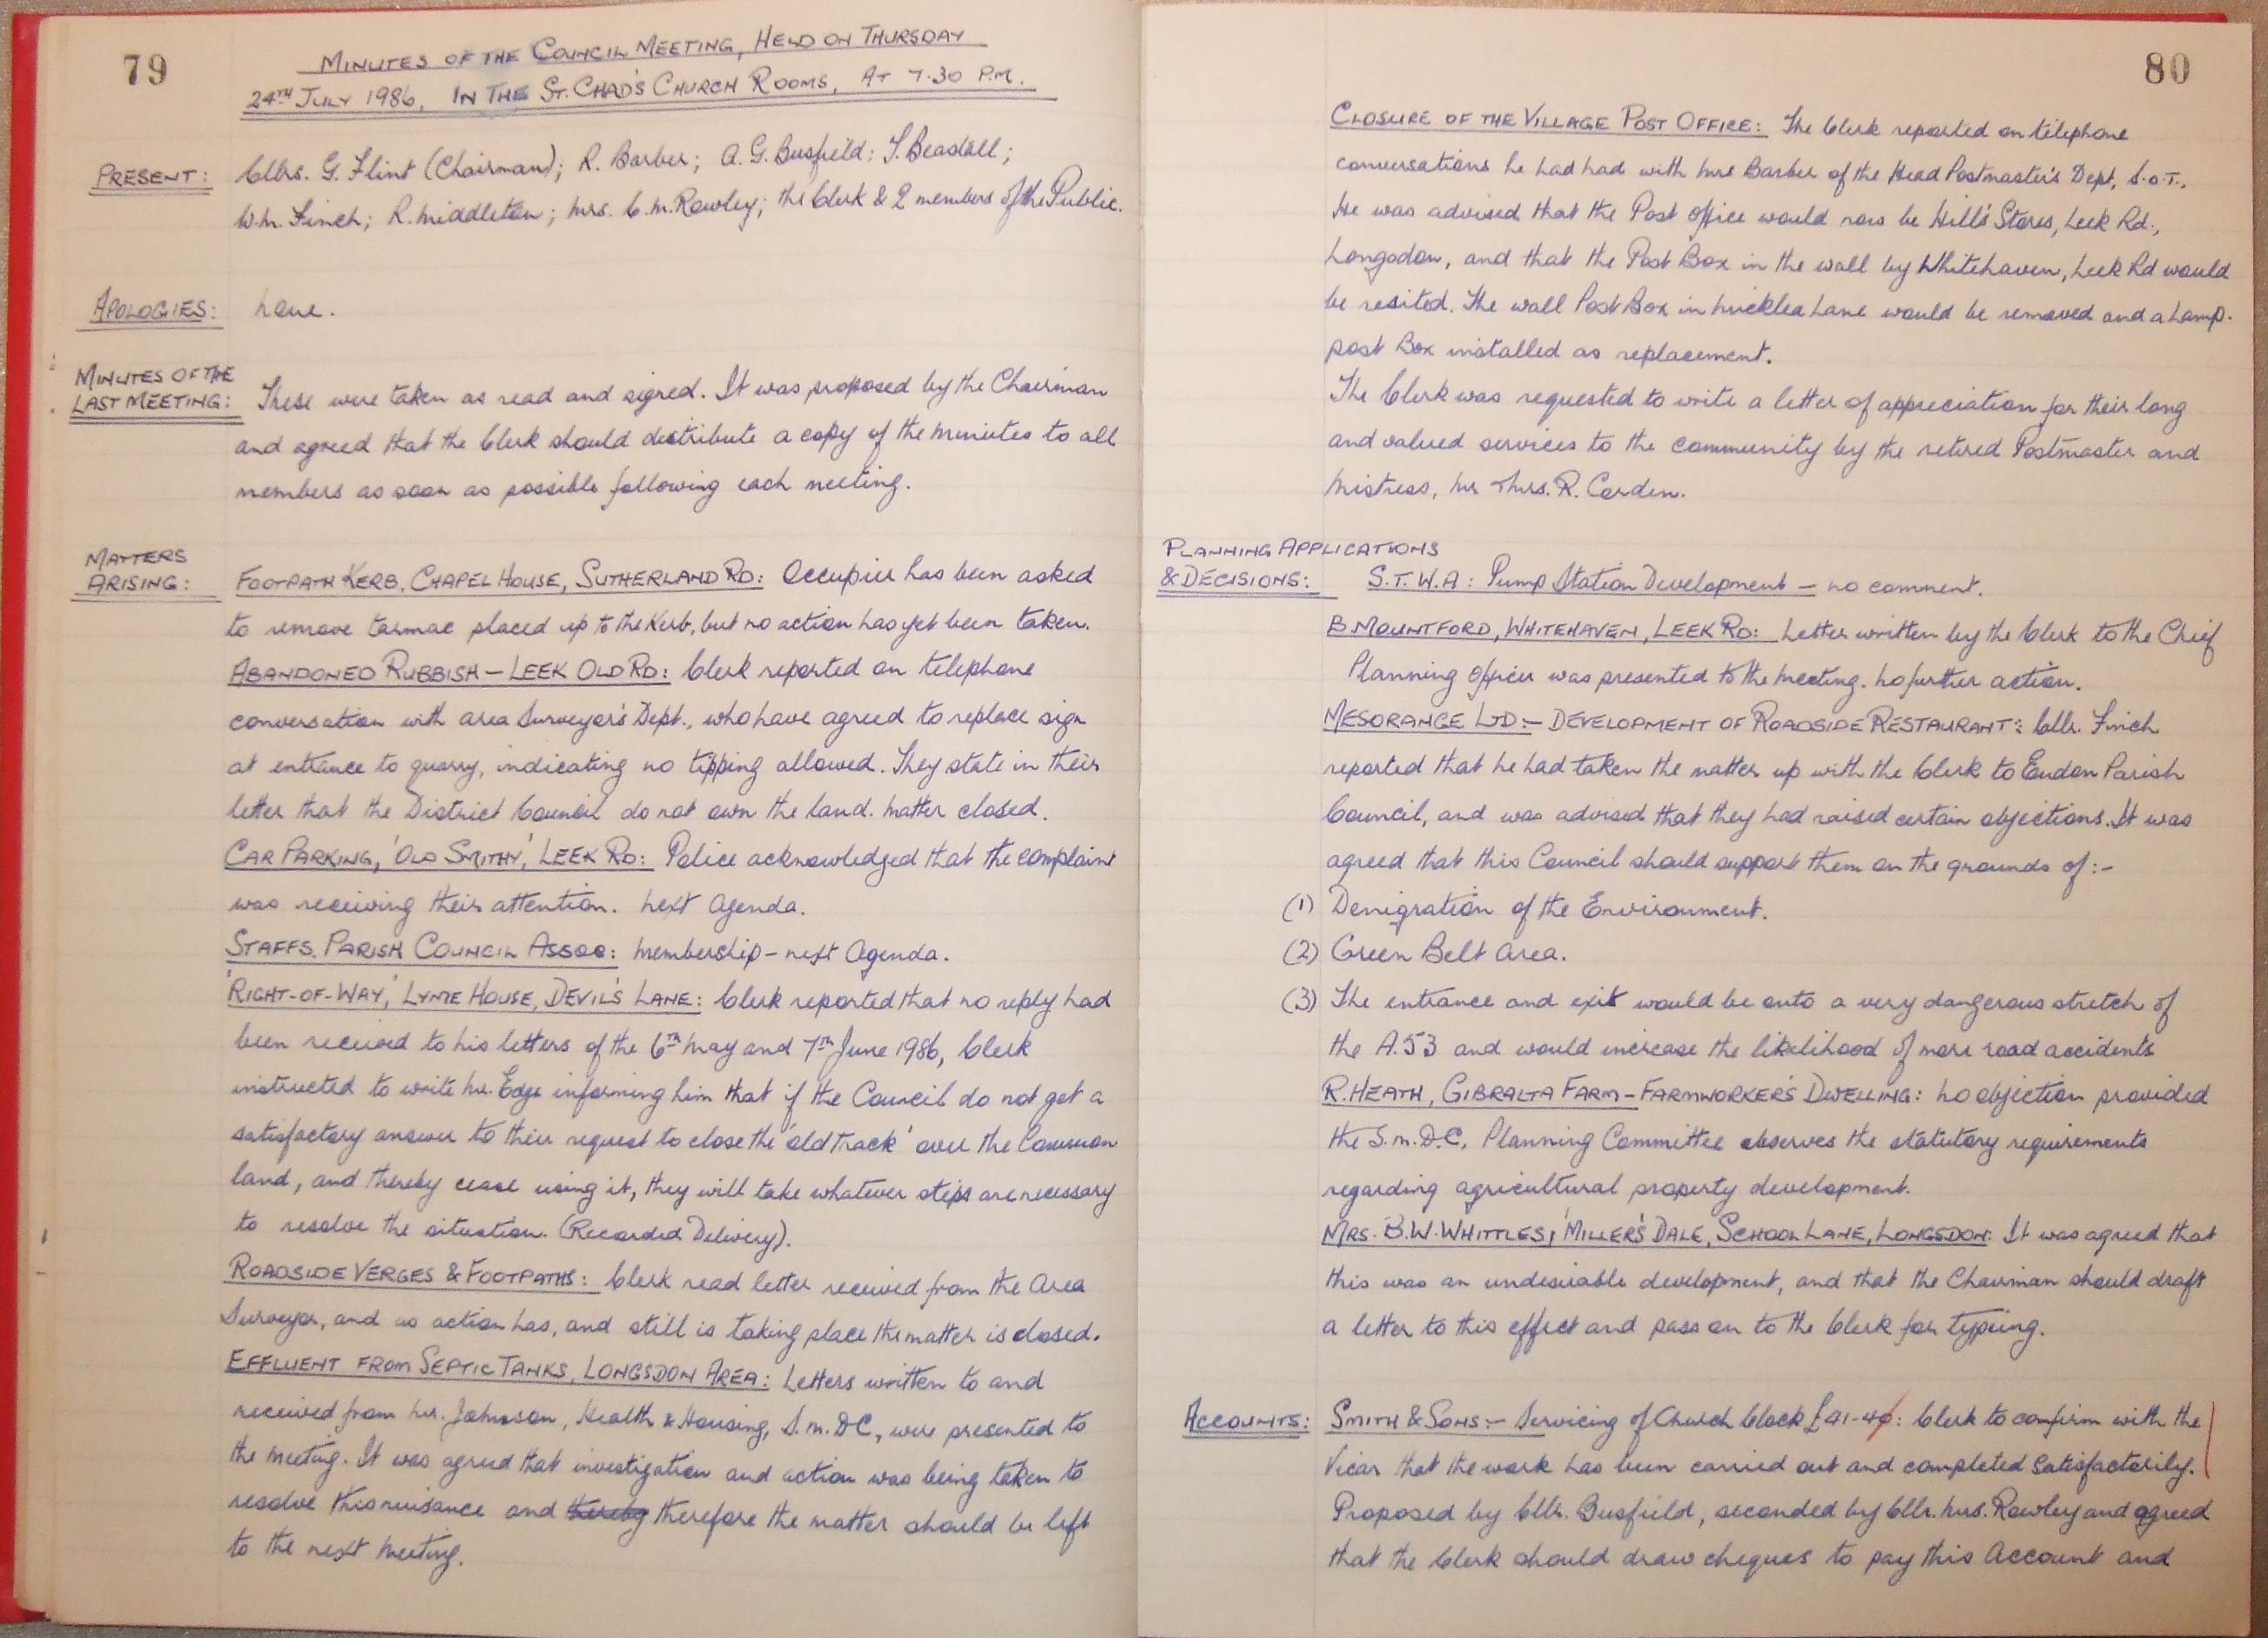 79
MINUTES OF THE COUNCIL MEETING, HELD ON THURSDAY
24TH JULY 1986, IN THE ST. CHAD'S CHURCH ROOMS, AT 7.30 P.M.
PRESENT: Cllrs. G. Flint (Chairman); R. Barber; A.G. Busfield; T. Beadall;
W.M. Finch; R. Middleton; Mrs. C.M. Rowley; the Clerk & 2 members of the Public.
APOLOGIES: None.
MINUTES OF THE
LAST MEETING: These were taken as read and signed. It was proposed by the Chairman
and agreed that the Clerk should distribute a copy of the Minutes to all
members as soon as possible following each meeting.
MATTERS
ARISING: FOOTPATH KERB, CHAPEL HOUSE, SUTHERLAND RD: Occupier has been asked
to remove tarmac placed up to the Kerb, but no action has yet been taken.
ABANDONED RUBBISH – LEEK OLD RD: Clerk reported on telephone
conversation with area Surveyor's Dept., who have agreed to replace sign
at entrance to quarry, indicating no tipping allowed. They state in their
letter that the District Council do not own the land. Matter closed.
CAR PARKING, 'OLD SMITHY,' LEEK RD: Police acknowledged that the complaint
was receiving their attention. Next Agenda.
STAFFS. PARISH COUNCIL ASSOC: Membership – next Agenda.
'RIGHT-OF-WAY,' LYME HOUSE, DEVIL'S LANE: Clerk reported that no reply had
been received to his letters of the 6TH May and 7TH June 1986, Clerk
instructed to write Mr. Edge informing him that if the Council do not get a
satisfactory answer to their request to close the 'old track' over the Common
land, and thereby cease using it, they will take whatever steps are necessary
to resolve the situation. (Recorded Delivery).
ROADSIDE VERGES & FOOTPATHS: Clerk read letter received from the Area
Surveyor, and as action has, and still is taking place the matter is closed.
EFFLUENT FROM SEPTIC TANKS, LONGSDON AREA: Letters written to and
received from Mr. Johnson, Health & Housing, S.M.D.C, were presented to
the Meeting. It was agreed that investigation and action was being taken to
resolve this nuisance and thereby therefore the matter should be left
to the next Meeting.
80
CLOSURE OF THE VILLAGE POST OFFICE: The Clerk reported on telephone
conversations he had had with Mrs Barber of the Head Postmaster's Dept, S.O.T.,
He was advised that the Post Office would now be Hill's Stores, Leek Rd.,
Longsdon, and that the Post Box in the wall by Whitehaven, Leek Rd would
be resited. The wall Post Box in Micklea Lane would be removed and a Lamp-
post Box installed as replacement.
The Clerk was requested to write a letter of appreciation for their long
and valued services to the community by the retired Postmaster and
Mistress, Mr & Mrs. R. Carden.
PLANNING APPLICATIONS
& DECISIONS: S.T.W.A: Pump Station Development – no comment.
B. MOUNTFORD, WHITEHAVEN, LEEK RD: Letter written by the Clerk to the Chief
Planning Officer was presented to the Meeting. No further action.
MESORANGE LTD:– DEVELOPMENT OF ROADSIDE RESTAURANT: Cllr. Finch
reported that he had taken the matter up with the Clerk to Endon Parish
Council, and was advised that they had raised certain objections. It was
agreed that this Council should support them on the grounds of:-
(1) Denigration of the Environment.
(2) Green Belt Area.
(3) The entrance and exit would be onto a very dangerous stretch of
the A.53 and would increase the likelihood of more road accidents
R. HEATH, GIBRALTA FARM – FARMWORKER'S DWELLING: No objection provided
the S.M.D.C. Planning Committee observes the statutory requirements
regarding agricultural property development.
MRS. B.W. WHITTLES, 'MILLER'S DALE, SCHOOL LANE, LONGSDON: It was agreed that
this was an undesirable development, and that the Chairman should draft
a letter to this effect and pass on to the Clerk for typing.
ACCOUNTS: SMITH & SONS:– Servicing of Church Clock £41-40: Clerk to confirm with the
Vicar that the work has been carried out and completed Satisfactorily.
Proposed by Cllr. Busfield, seconded by Cllr. Mrs. Rowley and agreed
that the Clerk should draw cheques to pay this Account and